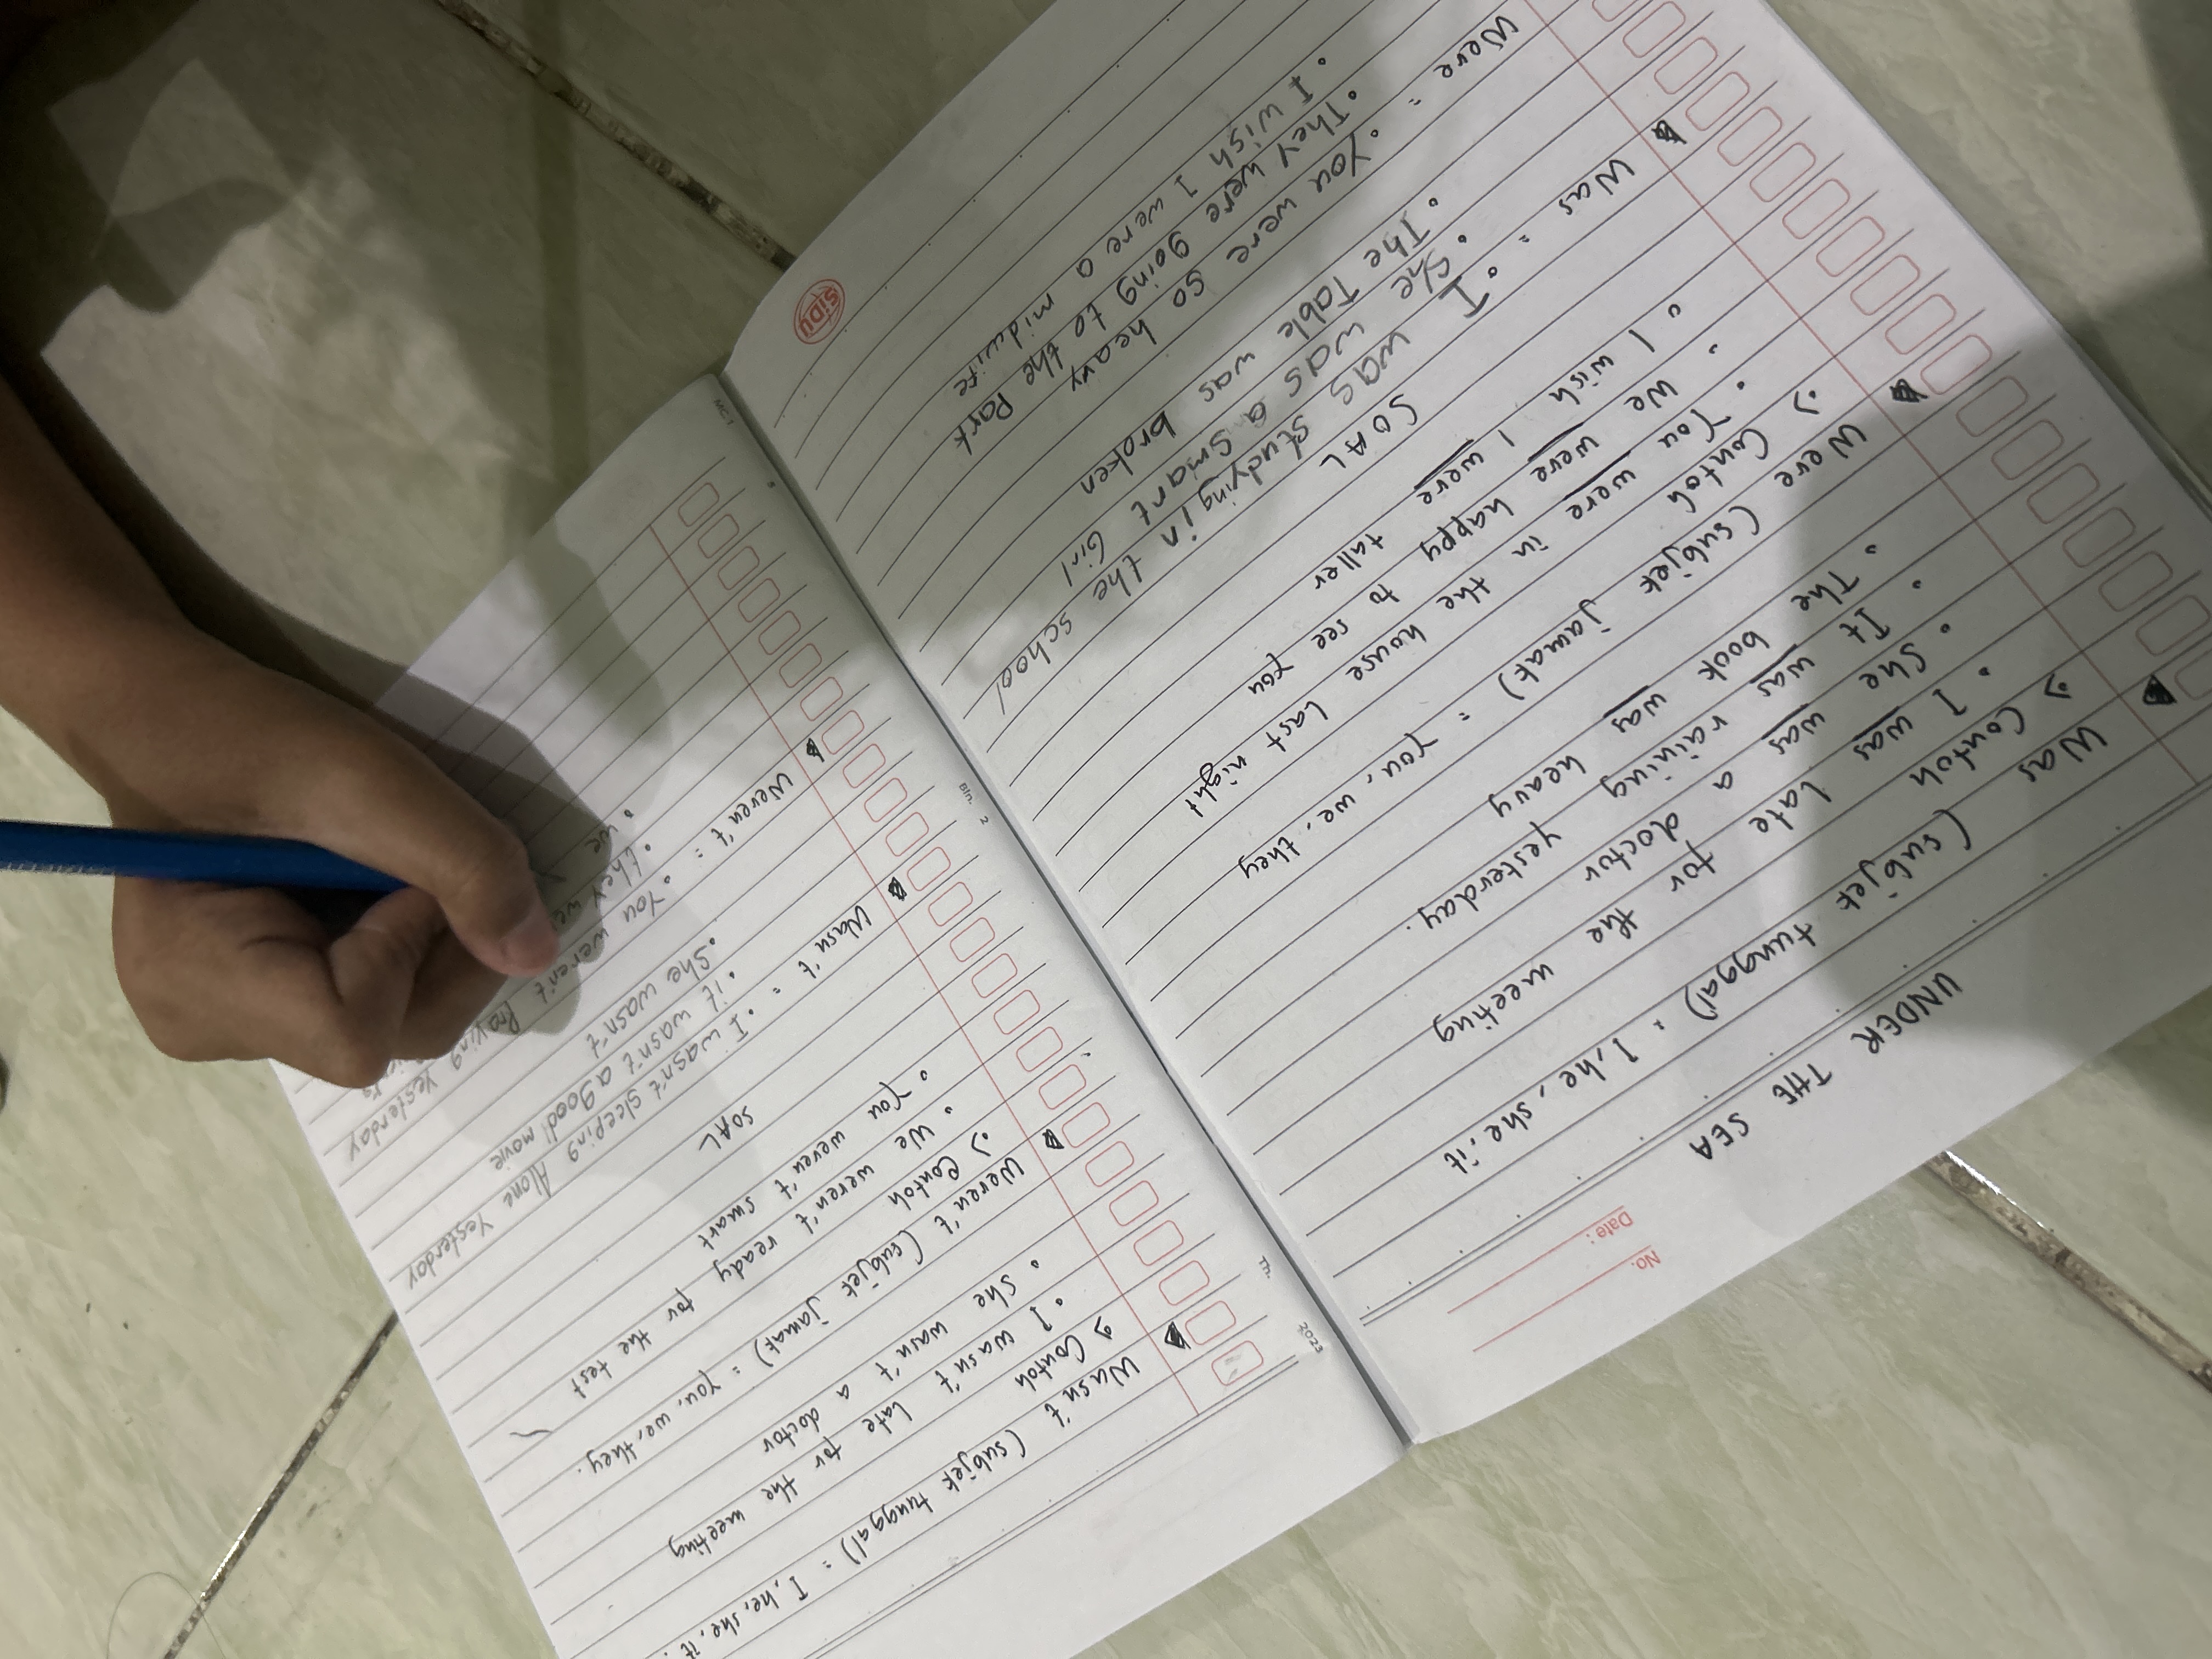 No.
Date:
UNDER THE SEA
Was (subjek tunggal) : I, he, she, it
=> Contoh
• I was late for the meeting
• She was a doctor
• It was raining yesterday.
• The book was heavy
Were (subjek jamak) = You, we, they
=> Contoh
• You were in the house last night
• We were happy to see you
• I wish I were taller
SOAL
Was = • I was studying in the school
• She was a smart Girl
• The Table was broken
Were = • You were so heavy
• They were going to the Park
• I wish I were a midwife
SiDU
Wasn't (subjek tunggal) = I, he, she, it.
=> Contoh
• I wasn't late for the meeting
• She wasn't a doctor
Weren't (subjek jamak) = You, we, they.
=> Contoh
• We weren't ready for the test
• You weren't smart
SOAL
Wasn't = • I wasn't sleeping Alone Yesterday
• it wasn't a good movie
• She wasn't
Weren't = • You weren't Praying Yesterday
• they
• we